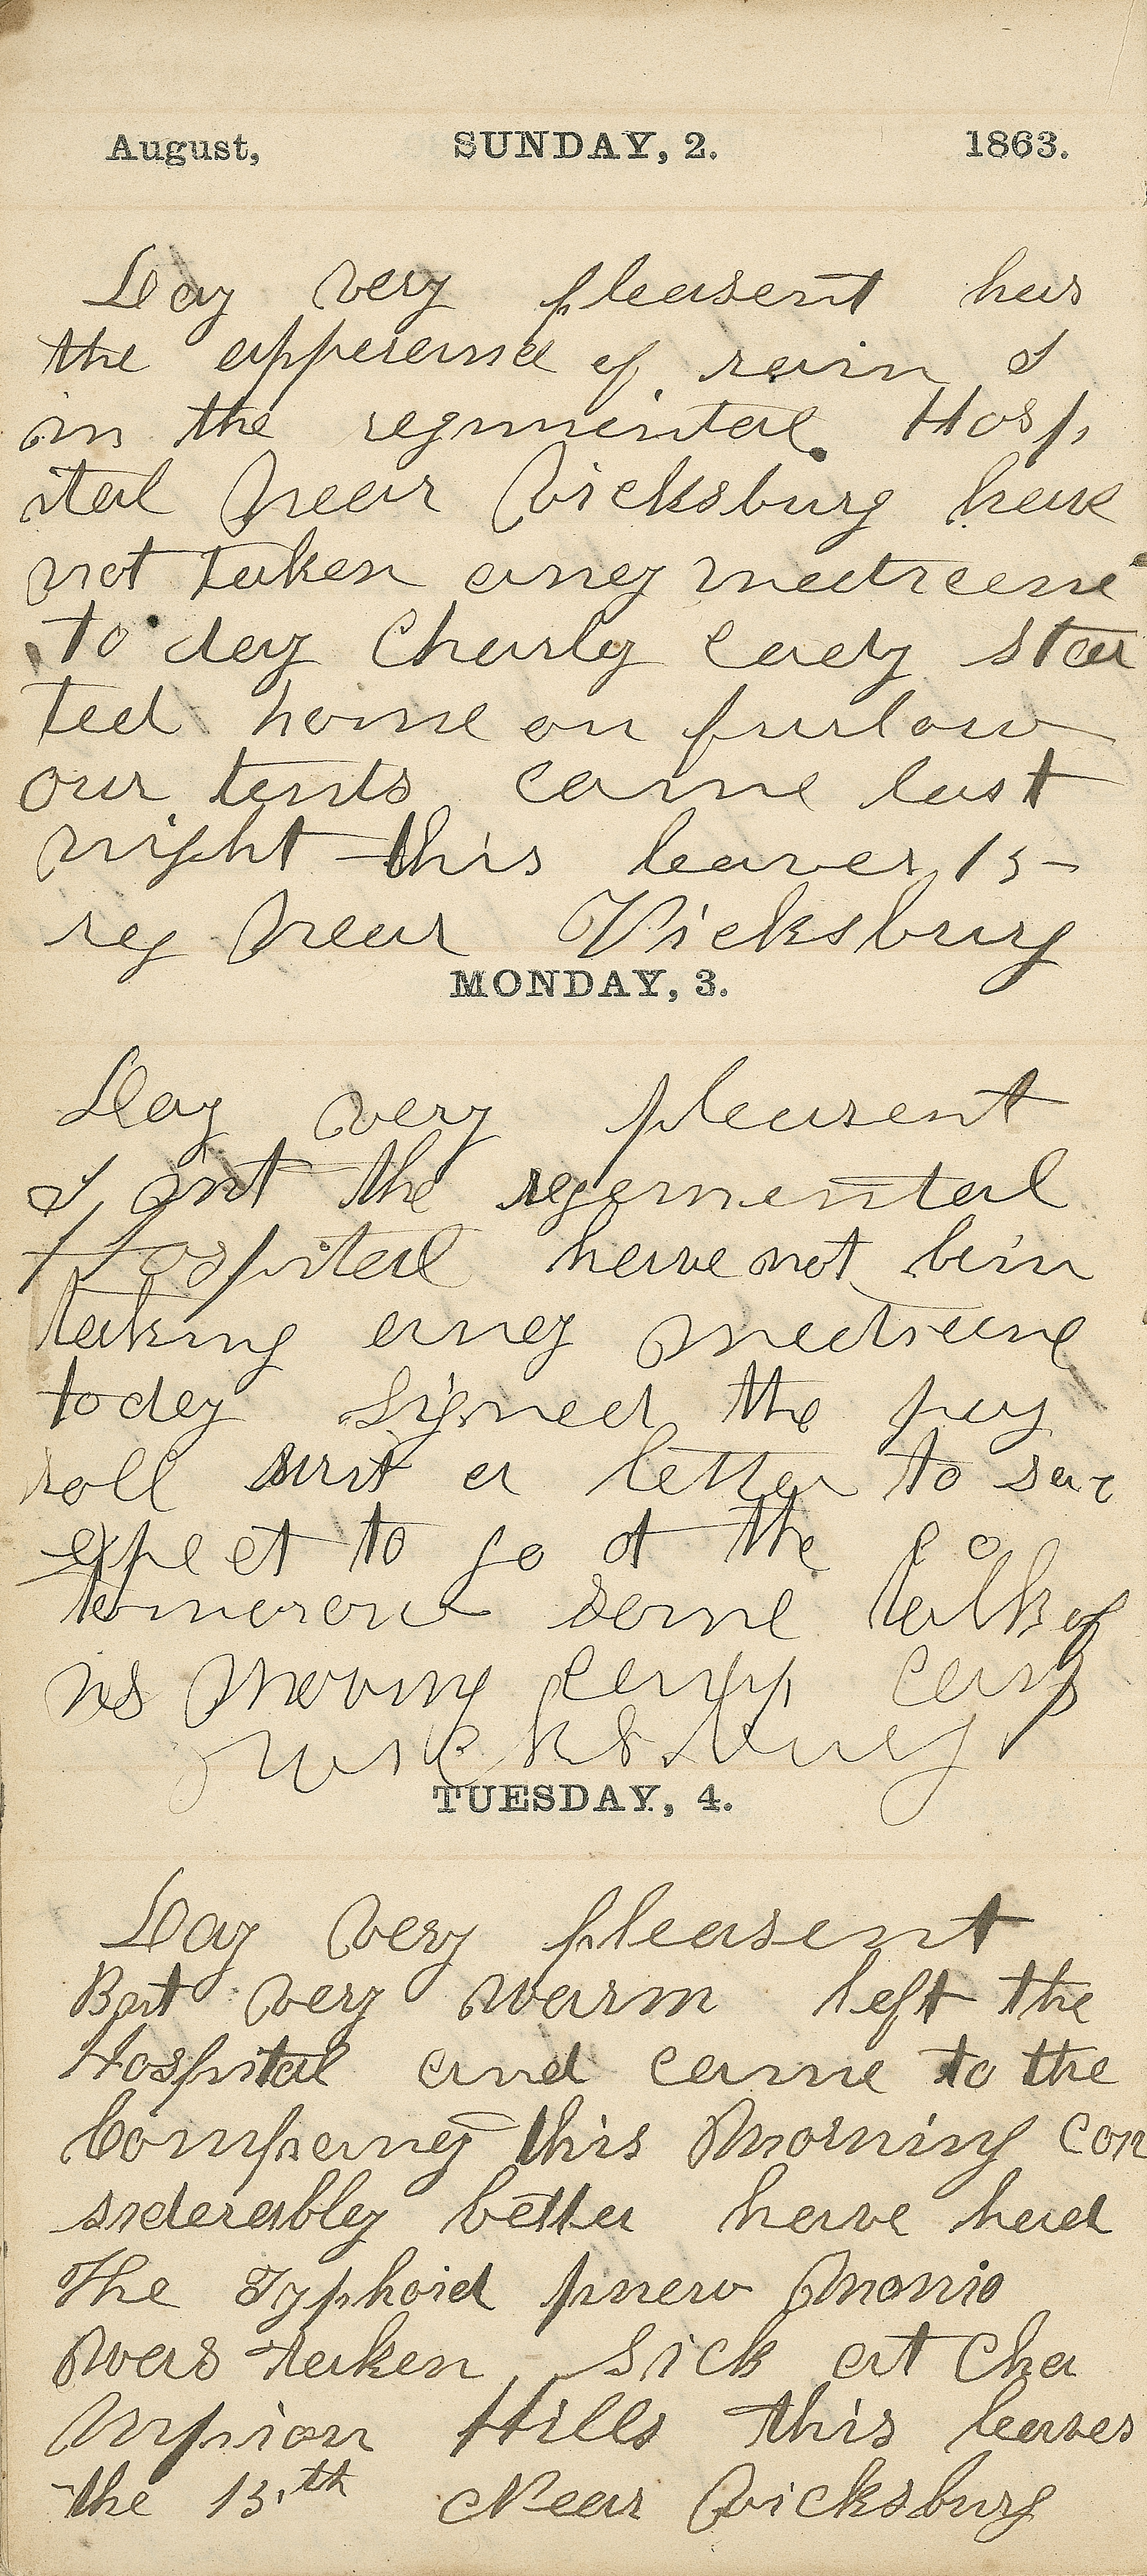 August, SUNDAY, 2. 1863.
Day very pleasent has
the apperance of rain I
in the regmintal Hosp
ital Near Vicksburg have
not taken aney medicene
to day Charly Cady star
ted home on furlow
our tents came last
night this leaves 15
reg Near Vicksburg
MONDAY, 3.
Day very pleasent
I, ant the regemental
Hospital have not bin
taking aney medicine
today Signed the pay
roll writ a letter to sar
expect to go ot the co
tomorow some talk of
us moving camp camp
Vicksburg
TUESDAY, 4.
Day very pleasent
But very warm left the
Hospital and came to the
Company this morning con
siderabley better have had
The Typhoid pnew monio
was taken sick at Cha
mpion Hills this leaves
the 15.th Near Vicksburg